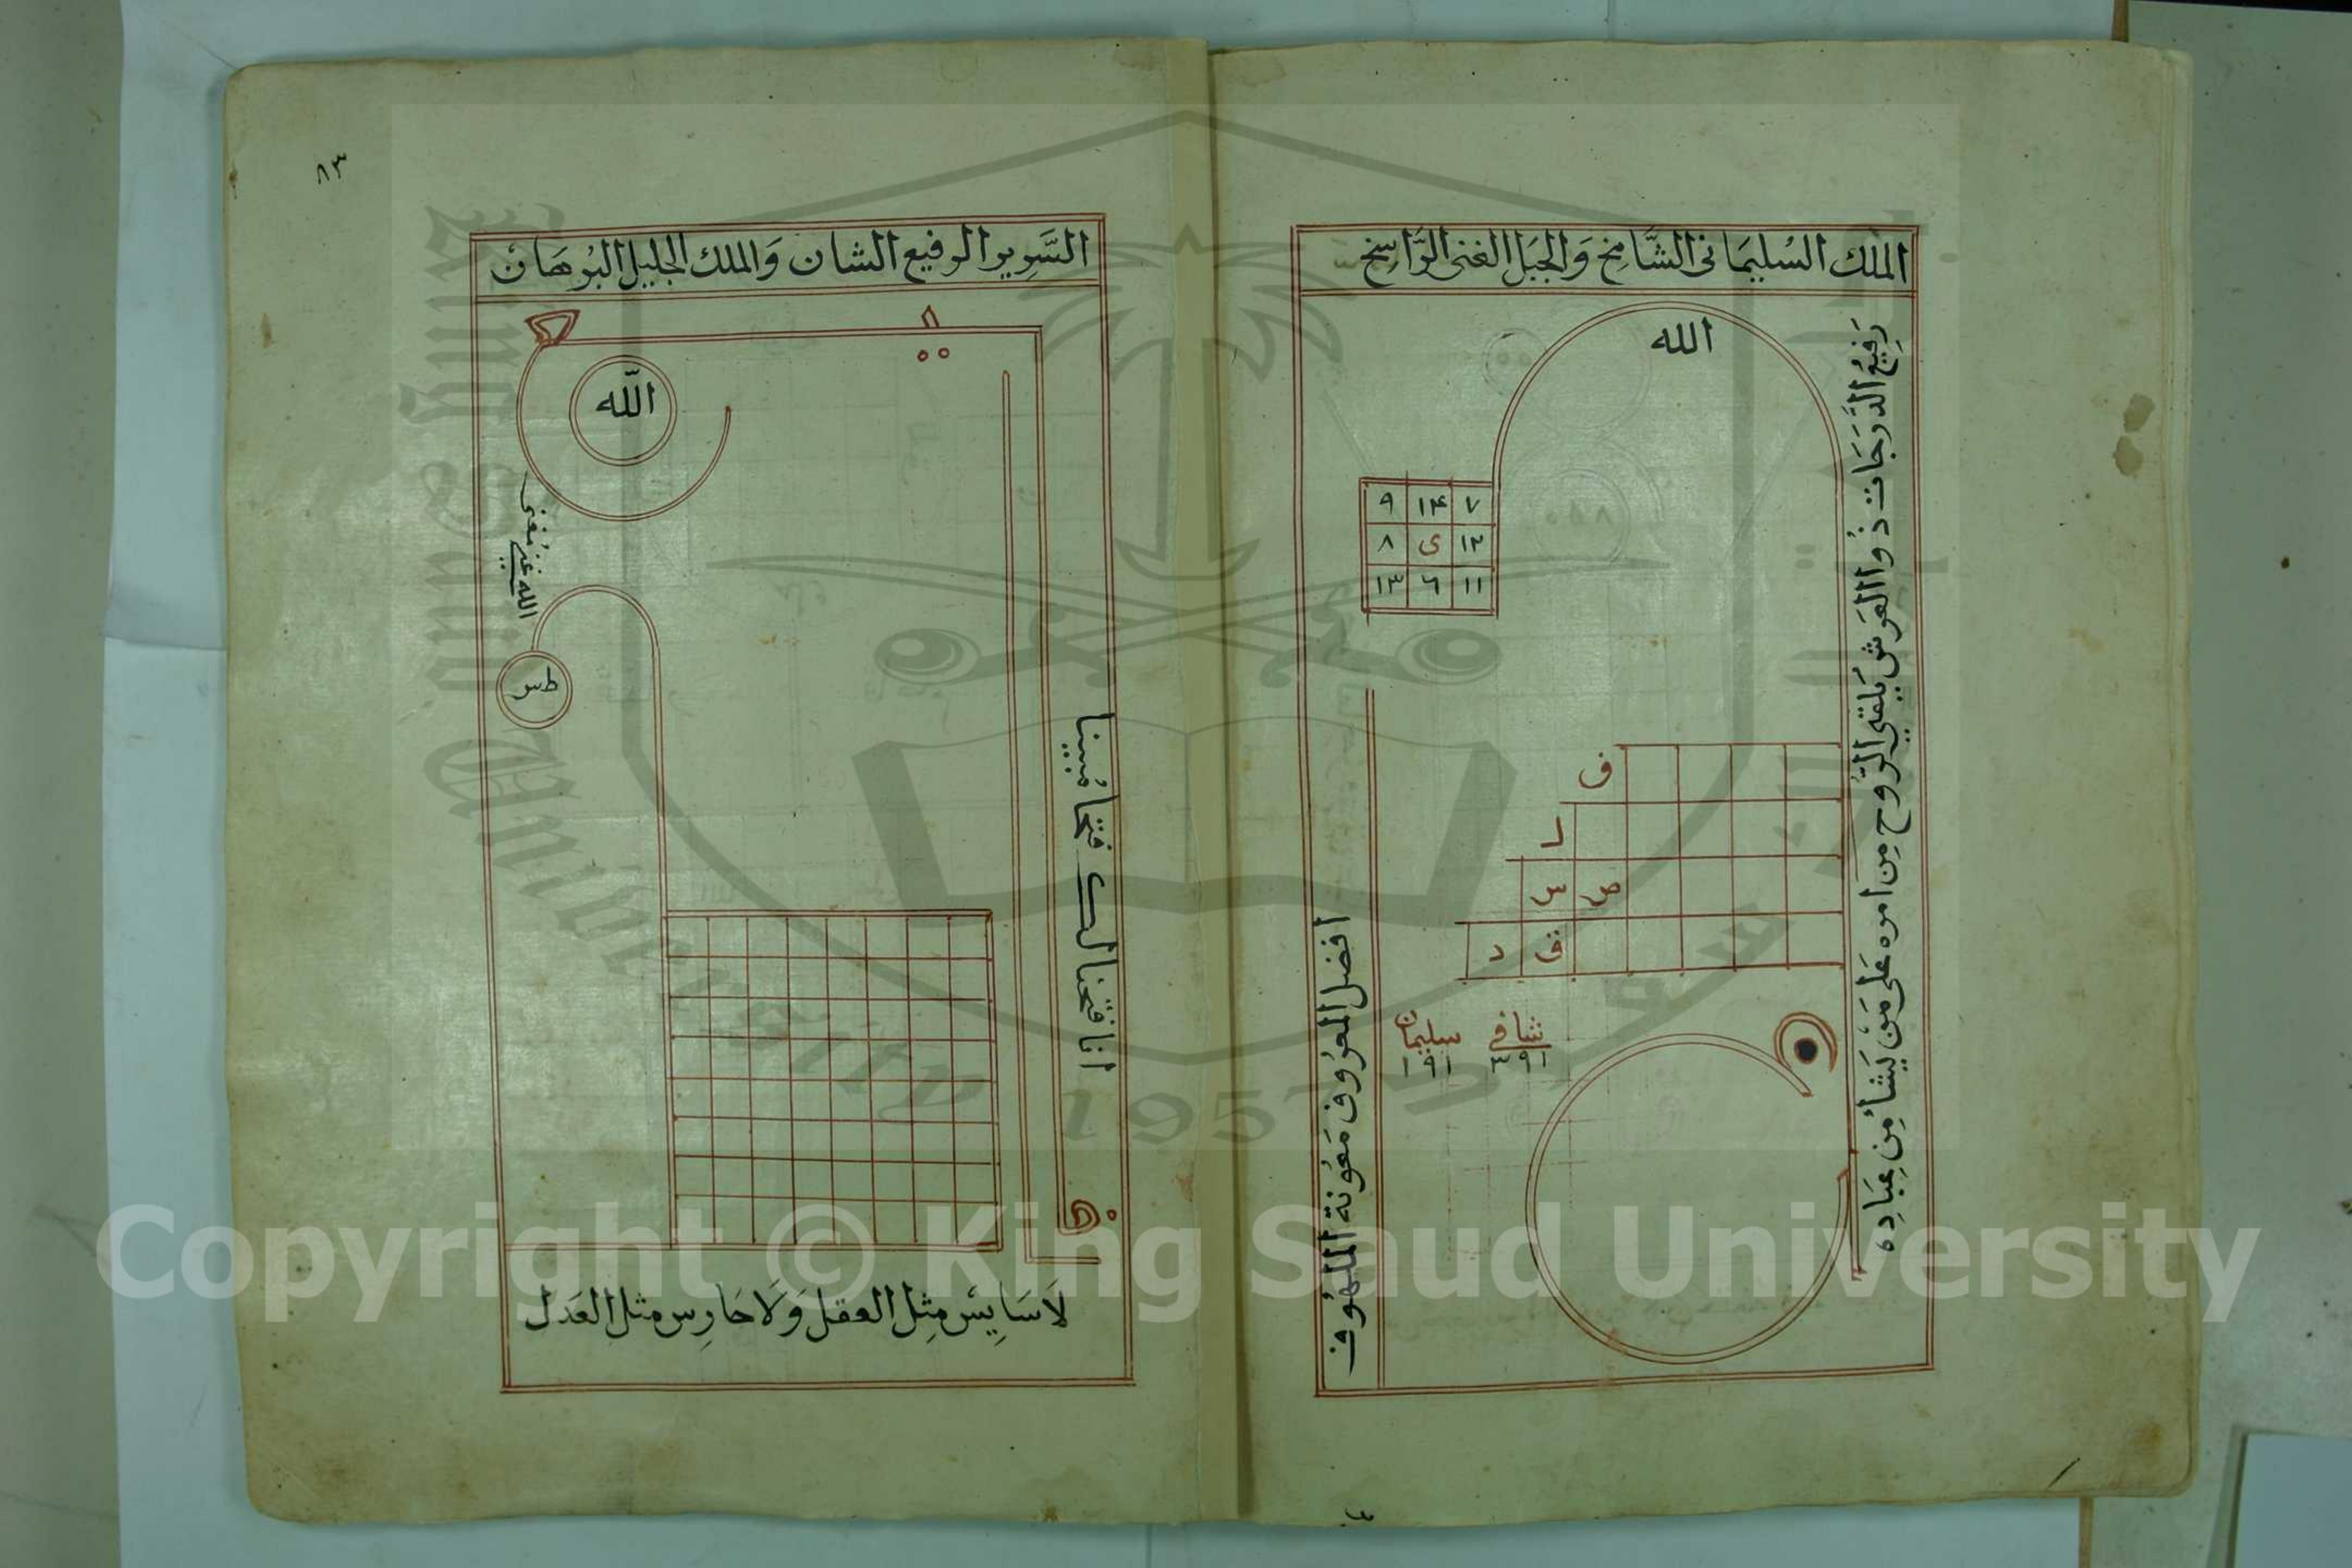 الملك السُليمَاني الشَّامِخ وَالجَبَل الغنى الرَّاسِخ
الله
رَفِيعُ الدَّرَجَات ذُو العَرش يُلقى الرُّوح مِن امره عَلى مَن يَشاءُ مِن عِبَادِه
٩ ١٤ ٧
٨ ى ١٢
١٣ ٦ ١١
ف
س ص
د ق
شافى سليمان
٣٩١ ١٩١
افضل المعرُوف مَعُونة الملهُوف
٨٣
السَّرِير الرفيع الشان وَالملك الجليل البُرهَان
الله
الله غنى مُغنى
طس
انا فتحنا لك فتحا مُبينا
لَا سَايِس مِثِل العقل وَلَا حَارِس مثل العَدل
King Saud University
1957
Copyright © King Saud University